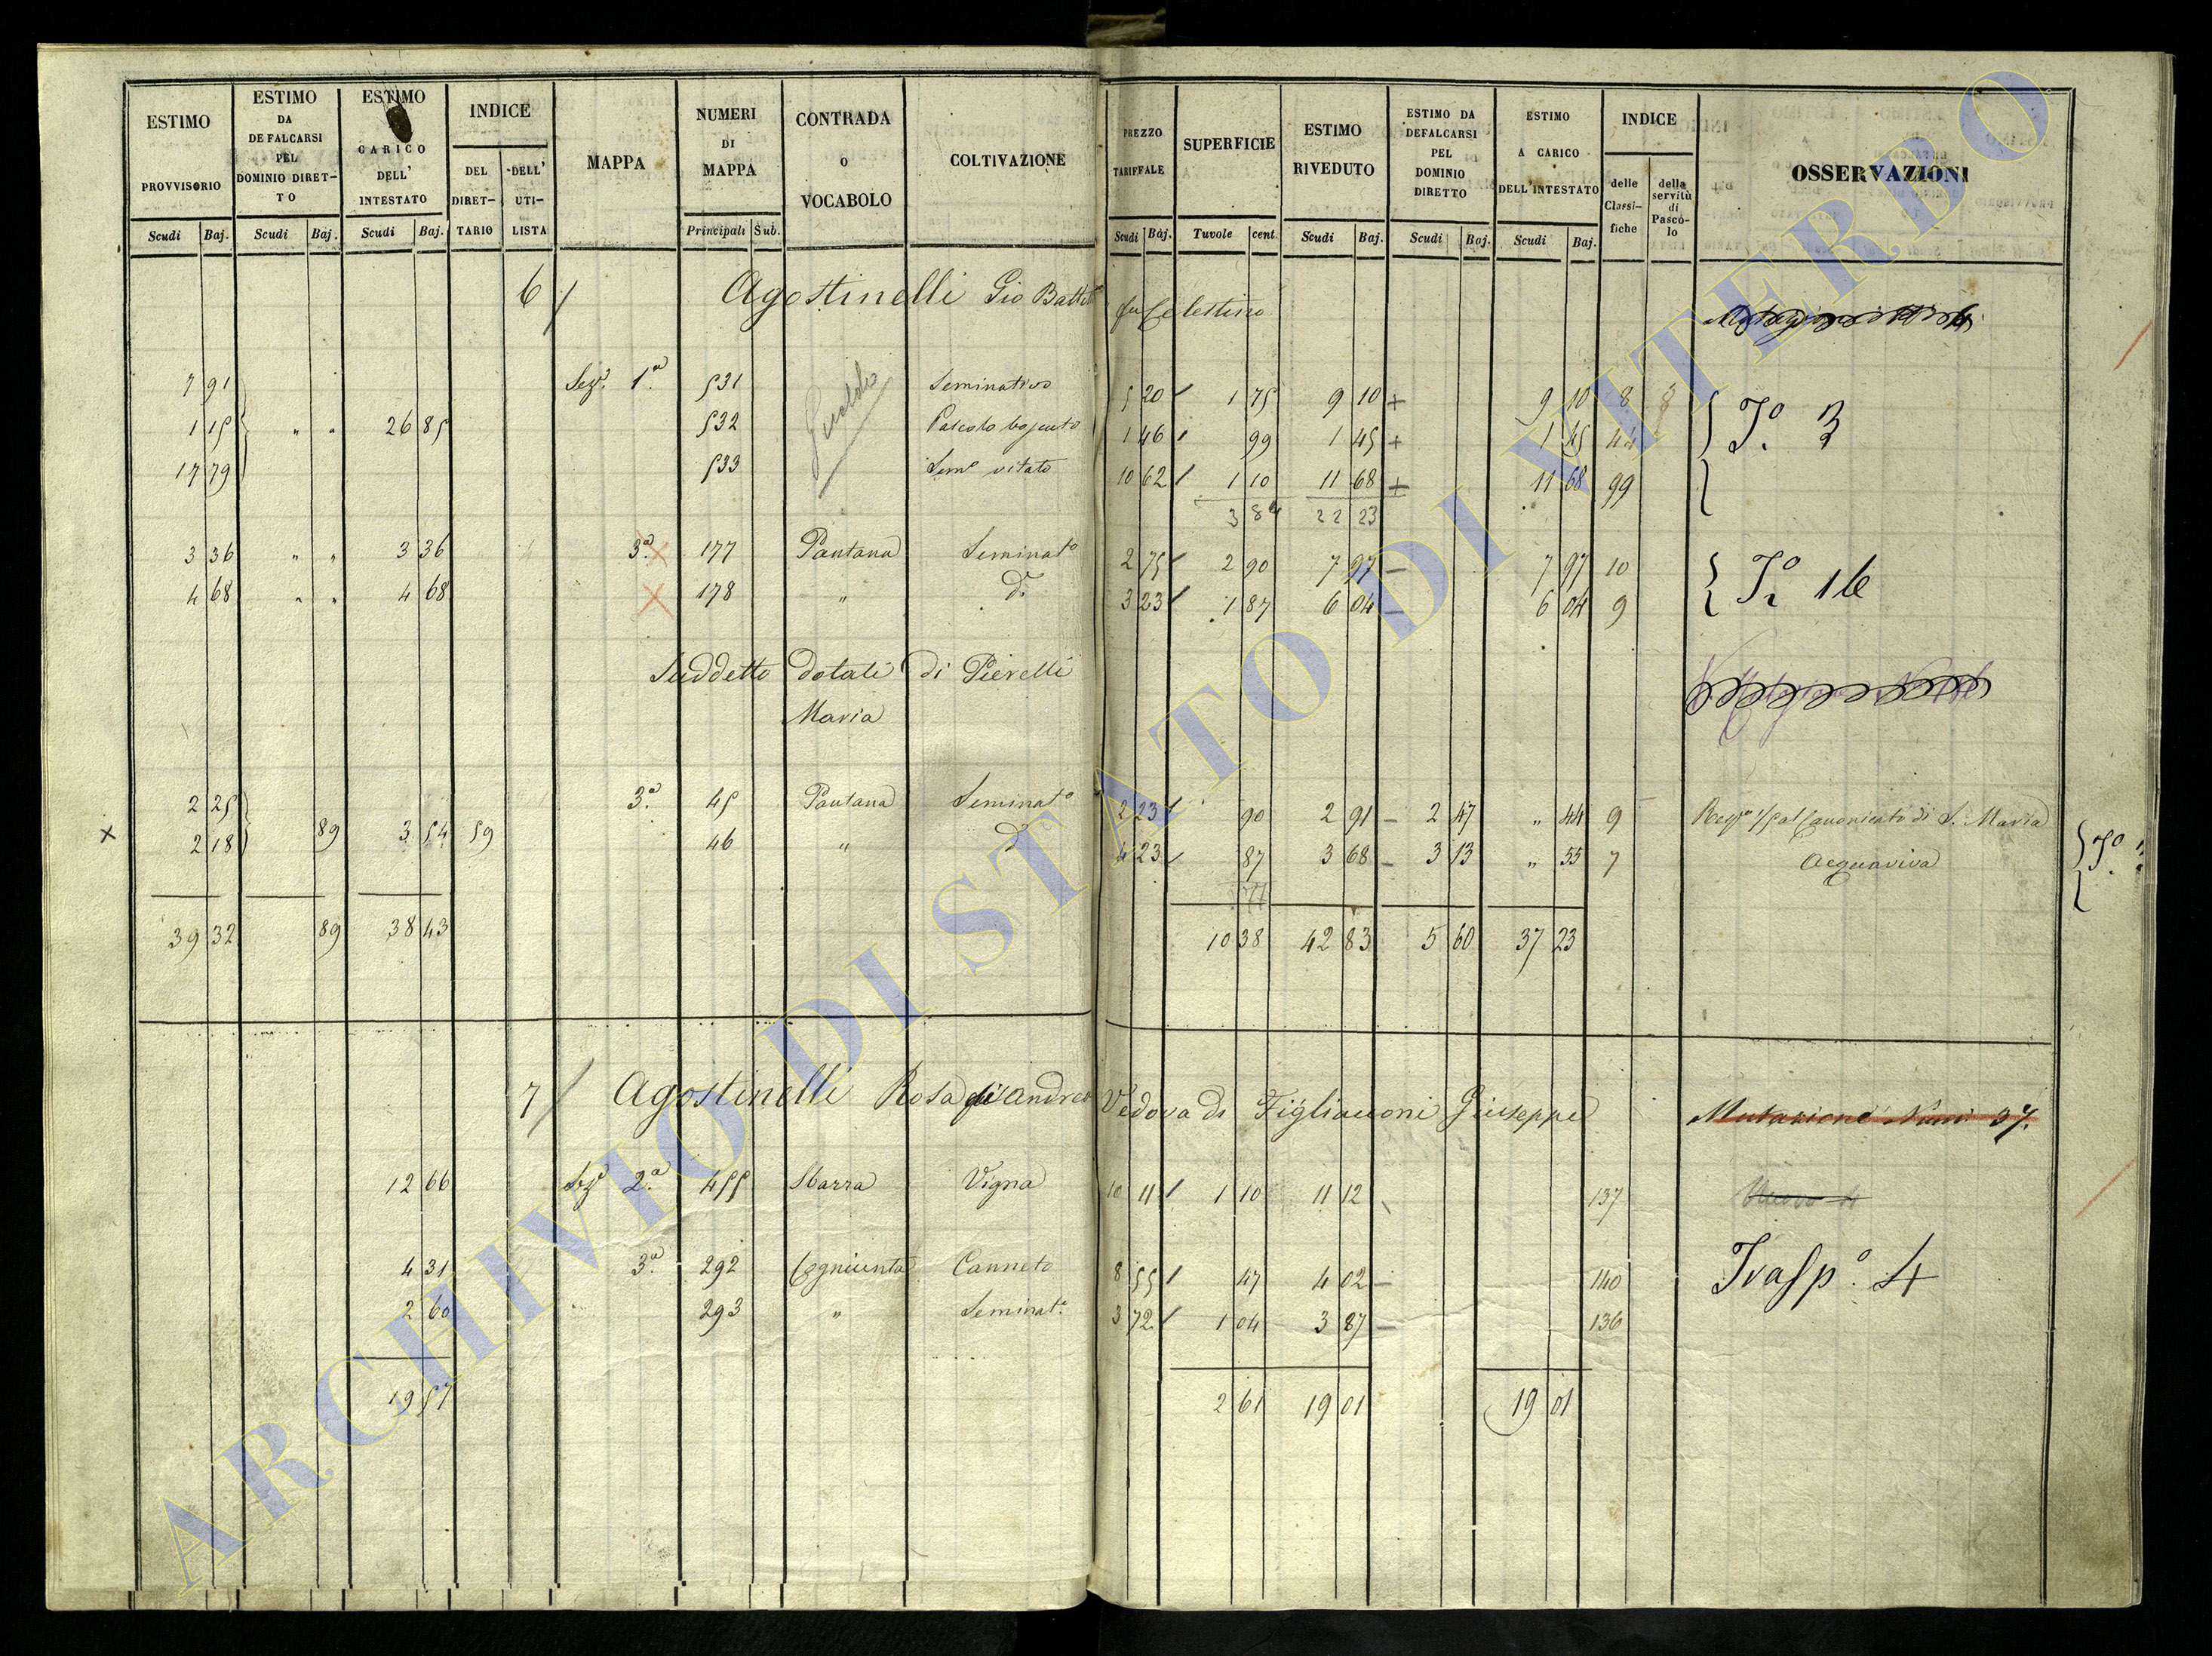 ESTIMO PROVVISORIO Scudi Baj.
ESTIMO DA DEFALCARSI PEL DOMINIO DIRETTO Scudi Baj.
ESTIMO CARICO DELL' INTESTATO Scudi Baj.
INDICE DEL DIRETTARIO DELL' UTILISTA
MAPPA
NUMERI DI MAPPA Principali Sub.
CONTRADA O VOCABOLO
COLTIVAZIONE
PREZZO TARIFFALE Scudi Baj.
SUPERFICIE Tavole cent.
ESTIMO RIVEDUTO Scudi Baj.
ESTIMO DA DEFALCARSI PEL DOMINIO DIRETTO Scudi Baj.
ESTIMO A CARICO DELL'INTESTATO Scudi Baj.
INDICE delle Classifiche della servitù di Pascolo
OSSERVAZIONI
6 / Agostinelli Gio Batt fu Celestino
7 91 Sez. 1ª 531 Seminativo 5 20 1 75 9 10 + 9 10 8 8
1 15 " " 26 85 532 Pascolo 1 46 99 1 45 + 1 45 44 Tº 3
17 79 533 Semº vitato 10 62 1 10 11 68 + 11 68 99
3 84 22 23
3 36 " " 3 36 3ª × 177 Pantana Seminatº 2 75 2 90 7 97 – 7 97 10 Tº 16
4 68 " " 4 68 × 178 " dº 3 23 1 87 6 04 – 6 04 9
Suddetto dotali di Pierelli
Maria
2 25 3ª 45 Pantana Seminatº 2 23 90 2 91 – 2 47 " 44 9 Canonicato di S. Maria
× 2 18 89 3 54 59 46 " dº 4 23 87 3 68 – 3 13 " 55 7 Acquaviva Tº
39 32 89 38 43 10 38 42 83 5 60 37 23
7 / Agostinelli Rosa di Andrea Vedova di Figliaconi Giuseppe Mutazione Num. 37.
12 66 Sezº 2ª 455 Sbarra Vigna 10 11 1 10 11 12 137
4 31 3ª 292 Cogniunta Canneto 8 55 47 4 02 – 140 Traspº 4
2 60 293 " Seminatº 3 72 1 04 3 87 – 136
19 57 2 61 19 01 19 01
ARCHIVIO DI STATO DI VITERBO